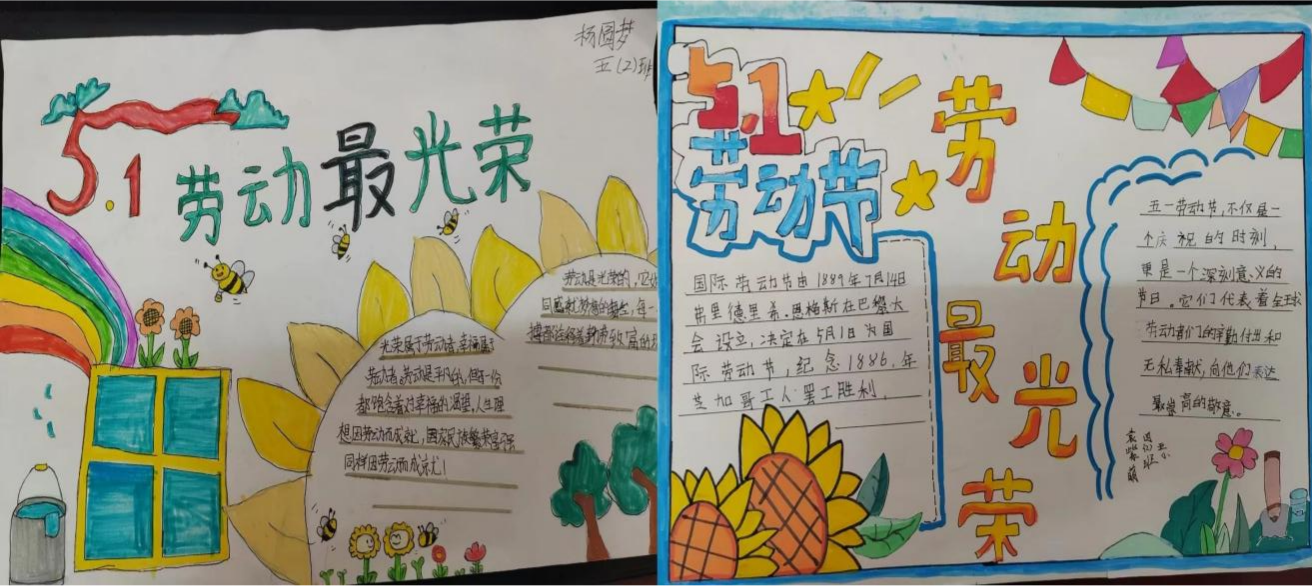 杨圆梦
五(2)班
5.1
劳动最光荣
光荣属于劳动者,幸福属于
劳动者。劳动是平凡的,但每一份
都饱含着对幸福的渴望,人生理
想因劳动而成就,国家民族繁荣富强
同样因劳动而成就!
劳动是光荣的,
同感就梦想的舞台,每一
5.1
劳动节
国际劳动节由1889年7月14日
弗里德里希·恩格斯在巴黎大
会设立,决定在5月1日为国
际劳动节,纪念1886年
芝加哥工人罢工胜利.
劳
动
最
光
荣
五一劳动节,不仅是一
个庆祝的时刻,
更是一个深刻意义的
节日。它们代表着全球
劳动者们的辛勤付出和
无私奉献,向他们表达
最崇高的敬意。